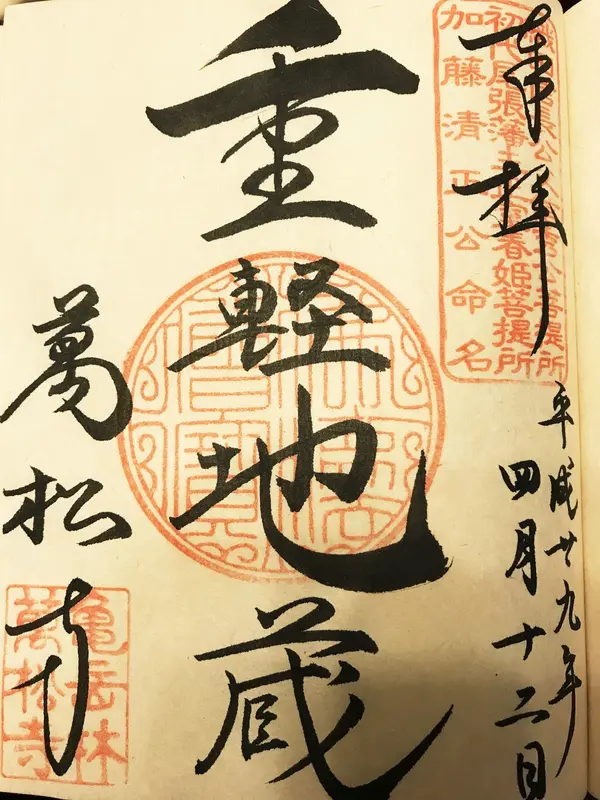 奉拝
織田信長公父信秀公菩提所
初代尾張藩主正室春姫菩提所
加藤清正公命名
平成廿九年
四月十二日
重軽地蔵
萬松寺
亀岳林
萬松寺